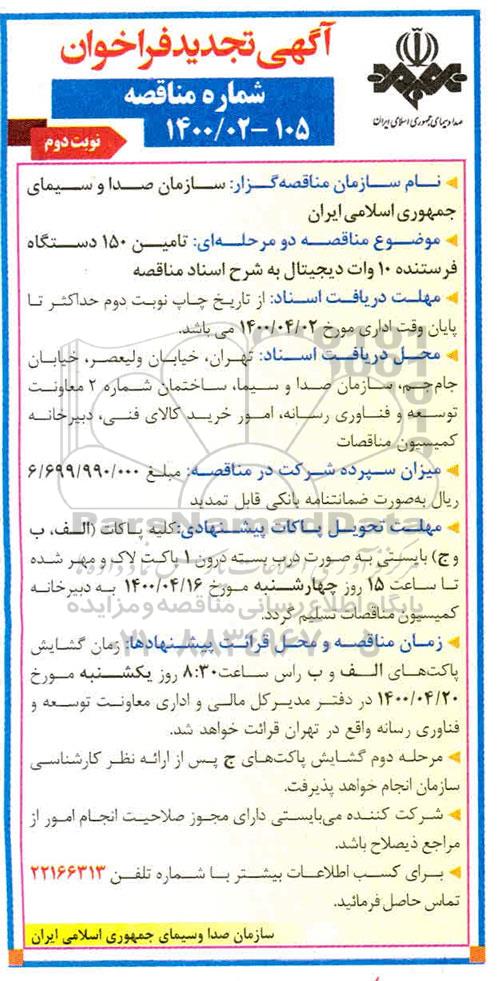 صدا و سیمای جمهوری اسلامی ایران
آگهی تجدید فراخوان
شماره مناقصه
۱۰۵ -۱۴۰۰/۰۲
نوبت دوم
نـام سـازمان مناقصه‌گـزار: سـازمان صـدا و سـیمای
جمهوری اسلامی ایران
موضـوع مناقصـه دو مرحلـه‌ای: تامیـن ۱۵۰ دسـتگاه
فرستنده ۱۰ وات دیجیتال به شرح اسناد مناقصه
مهلـت دریافـت اسـناد: از تاریـخ چـاپ نوبـت دوم حداکثـر تـا
پایان وقت اداری مورخ ۱۴۰۰/۰۴/۰۲ می باشد.
محـل دریافـت اسـناد: تهـران، خیابـان ولیعصـر، خیابـان
جام‌جـم، سـازمان صـدا و سـیما، سـاختمان شـماره ۲ معاونـت
توسـعه و فنـاوری رسـانه، امـور خریـد کالای فنـی، دبیرخانـه
کمیسیون مناقصات
میـزان سـپرده شـرکت در مناقصـه: مبلـغ ۶/۶۹۹/۹۹۰/۰۰۰
ریال به‌صورت ضمانتنامه بانکی قابل تمدید
مهلـت تحویـل پـاکات پیشـنهادی: کلیـه پـاکات (الـف، ب
و ج) بایسـتی بـه صـورت درب بسـته درون ۱ پاکـت لاک و مهـر شـده
تـا سـاعت ۱۵ روز چهارشـنبه مـورخ ۱۴۰۰/۰۴/۱۶ بـه دبیرخانـه
کمیسیون مناقصات تسلیم گردد.
زمـان مناقصـه و محـل قرائـت پیشـنهادها: زمان گشـایش
پاکت‌هـای الـف و ب راس سـاعت۸:۳۰ روز یکشـنبه مـورخ
۱۴۰۰/۰۴/۲۰ در دفتـر مدیـرکل مالـی و اداری معاونـت توسـعه و
فناوری رسانه واقع در تهران قرائت خواهد شد.
مرحلـه دوم گشـایش پاکت‌هـای ج پـس از ارائـه نظـر کارشناسـی
سازمان انجام خواهد پذیرفت.
شـرکت کننـده می‌بایسـتی دارای مجـوز صلاحیـت انجـام امـور از
مراجع ذیصلاح باشد.
بـرای کسـب اطلاعـات بیشـتر بـا شـماره تلفـن ۲۲۱۶۶۳۱۳
تماس حاصل فرمائید.
سازمان صدا وسیمای جمهوری اسلامی ایران
ParsNamadData
پایگاه اطلاع رسانی مناقصه و مزایده
۰۲۱-۸۸۳۴۹۶۷۰